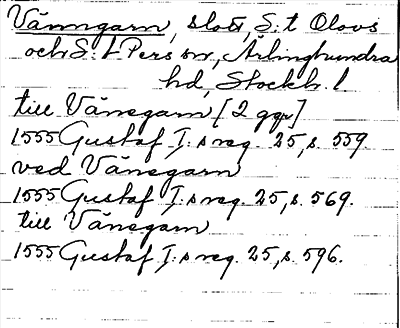 Vänngarn, slott, S:t Olovs
och S:t Pers snr, Ärlinghundra
hd, Stockh. l
till Vänegarn [2 ggr]
1555 Gustaf I:s reg. 25, s. 559.
ved Vänegarn
1555 Gustaf I:s reg. 25, s. 569.
till Vänegarn
1555 Gustaf I:s reg. 25, s. 596.